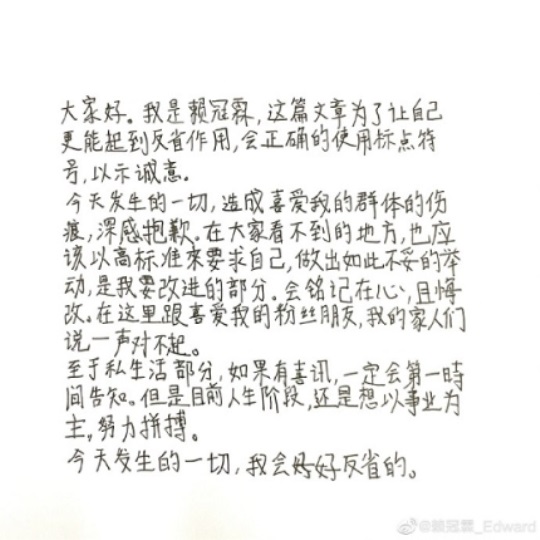 大家好。我是賴冠霖,这篇文章为了让自己
更能起到反省作用,会正确的使用标点符
号,以示诚意。
今天发生的一切,造成喜爱我的群体的伤
痕,深感抱歉。在大家看不到的地方,也应
该以高标准来要求自己,做出如此不妥的举
动,是我要改进的部分。会铭记在心,且悔
改。在这里跟喜爱我的粉丝朋友,我的家人们
说一声对不起。
至于私生活部分,如果有喜讯,一定会第一時
間告知。但是目前人生阶段,还是想以事业为
主,努力拼搏。
今天发生的一切,我会好好反省的。
@賴冠霖_Edward